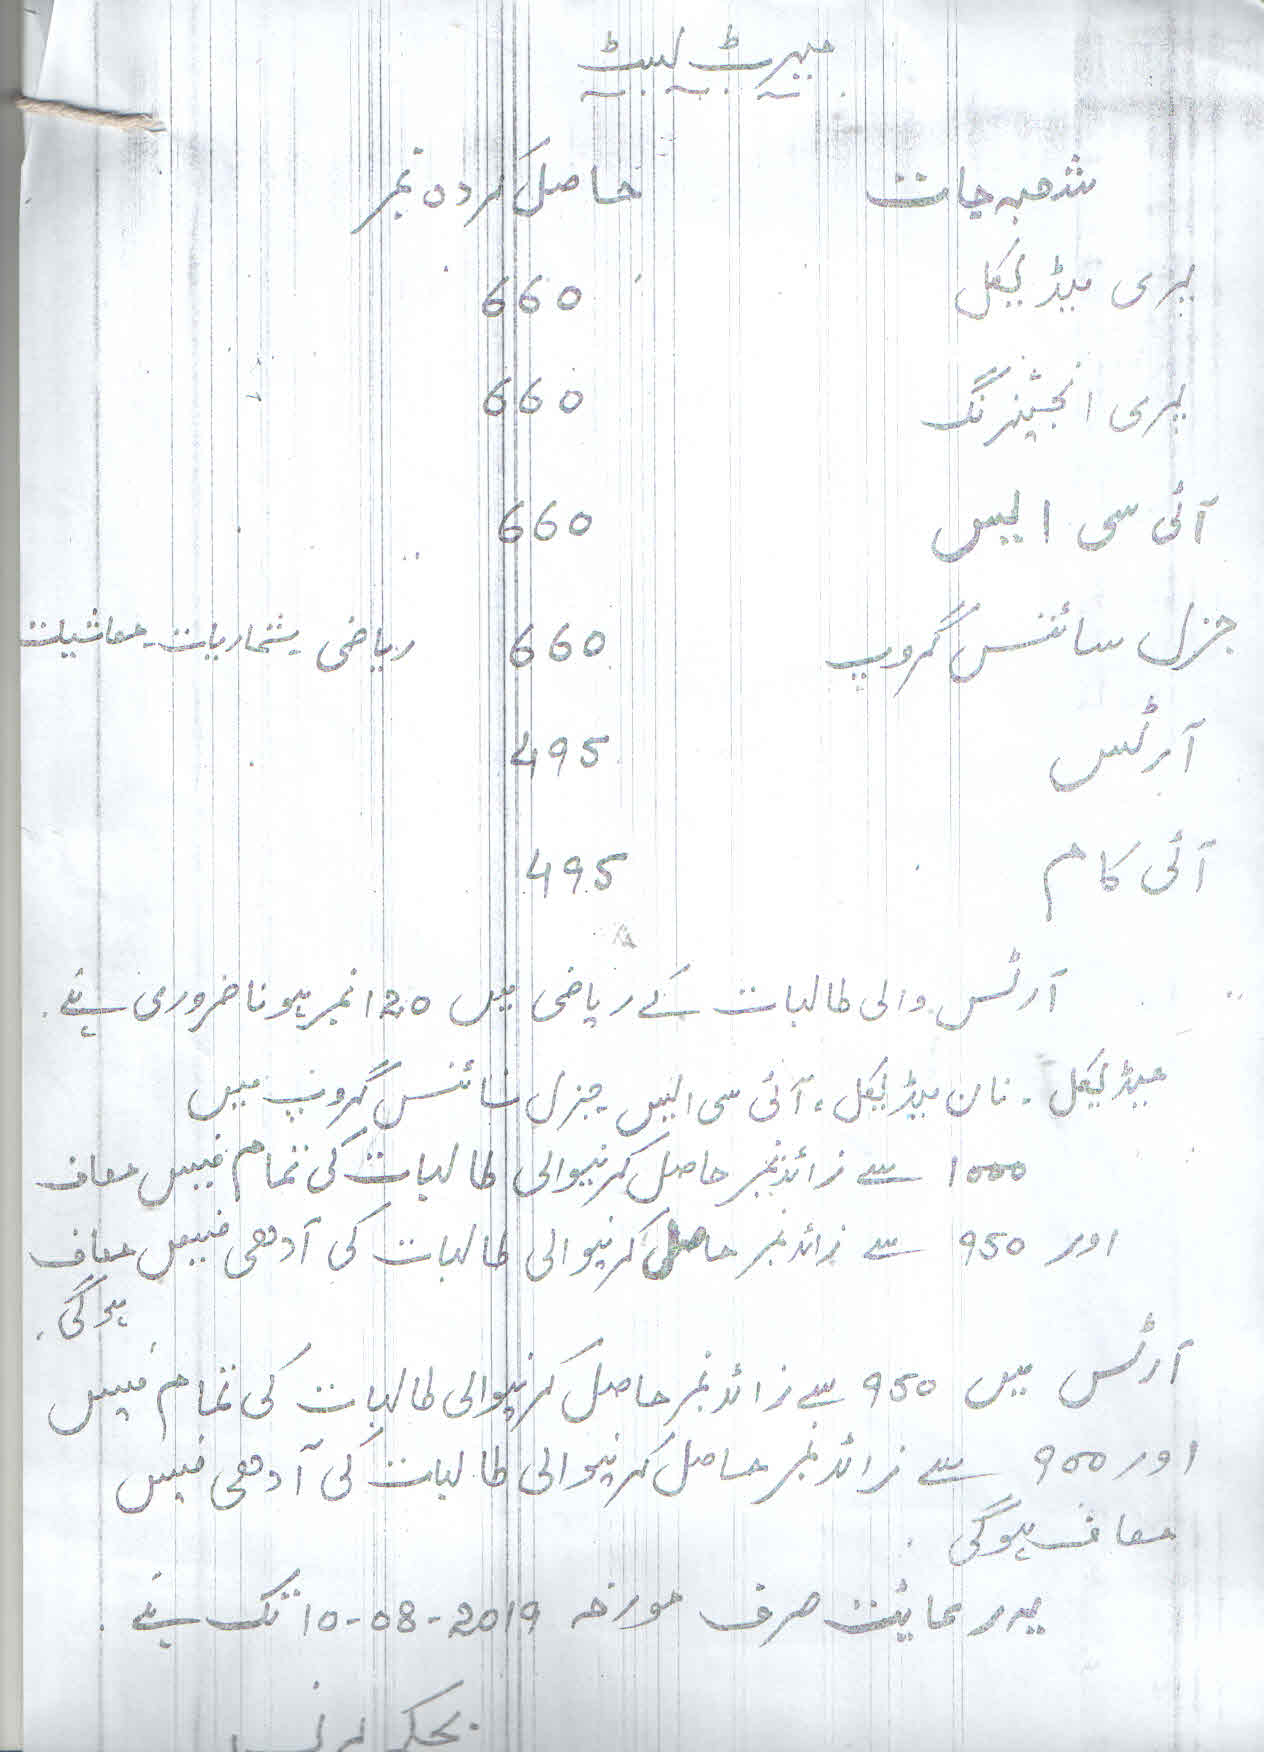 میرٹ لسٹ
شعبہ جات حاصل کردہ نمبر
پری میڈیکل 660
پری انجینرنگ 660
آئی سی ایس 660
جنرل سائنس گروپ 660 ریاضی۔شماریات۔معاشیات
آرٹس 495
آئی کام 495
آرٹس والی طالبات کے ریاضی میں 120 نمبر ہونا ضروری ہے۔
میڈیکل۔ نان میڈیکل، آئی سی ایس۔جنرل سائنس گروپ میں
1000 سے زائد نمبر حاصل کرنیوالی طالبات کی تمام فیس معاف
اور 950 سے زائد نمبر حاصل کرنیوالی طالبات کی آدھی فیس معاف
ہوگی۔
آرٹس میں 950 سے زائد نمبر حاصل کرنیوالی طالبات کی تمام فیس
اور 900 سے زائد نمبر حاصل کرنیوالی طالبات کی آدھی فیس
معاف ہوگی۔
یہ رعائیت صرف مورخہ 10-08-2019 تک ہے۔
بحکم پرنسپل